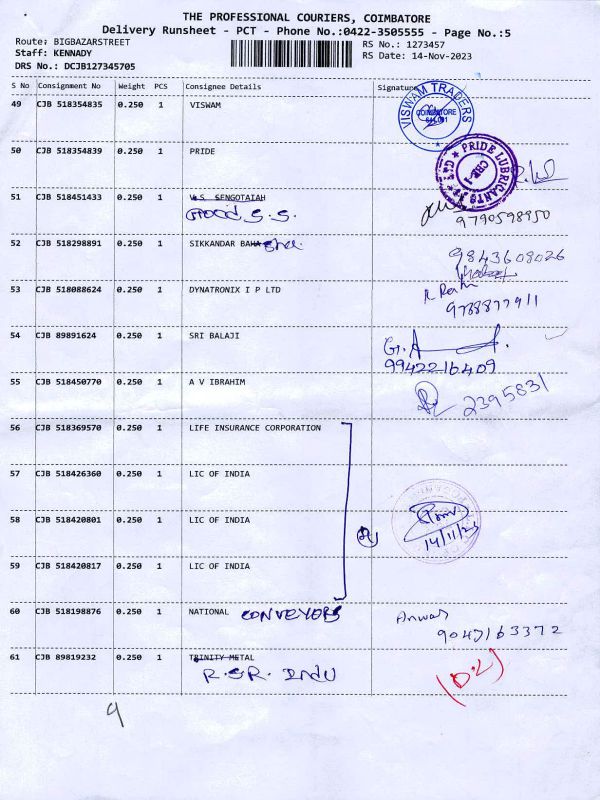 THE PROFESSIONAL COURIERS, COIMBATORE
Delivery Runsheet - PCT - Phone No.:0422-3505555 - Page No.:5
Route: BIGBAZARSTREET
Staff: KENNADY
DRS No.: DCJB127345705
RS No.: 1273457
RS Date: 14-Nov-2023
S No Consignment No Weight PCS Consignee Details Signature
49 CJB 518354835 0.250 1 VISWAM
VISWAM TRADERS
COIMBATORE
50 CJB 518354839 0.250 1 PRIDE
PRIDE LUBRICANTS
CBE-1
51 CJB 518451433 0.250 1 V.S. SENGOTAIAH
Good S.S.
9790598950
52 CJB 518298891 0.250 1 SIKKANDAR BAHA
9843608026
53 CJB 518088624 0.250 1 DYNATRONIX I P LTD
9788877911
54 CJB 89891624 0.250 1 SRI BALAJI
9942216409
55 CJB 518450770 0.250 1 A V IBRAHIM
2395831
56 CJB 518369570 0.250 1 LIFE INSURANCE CORPORATION
57 CJB 518426360 0.250 1 LIC OF INDIA
58 CJB 518420801 0.250 1 LIC OF INDIA
14/11/23
59 CJB 518420817 0.250 1 LIC OF INDIA
60 CJB 518198876 0.250 1 NATIONAL CONVEYORS
Anwar
9047163372
61 CJB 89819232 0.250 1 TRINITY METAL
R.S.R. INDU
(D.L)
9